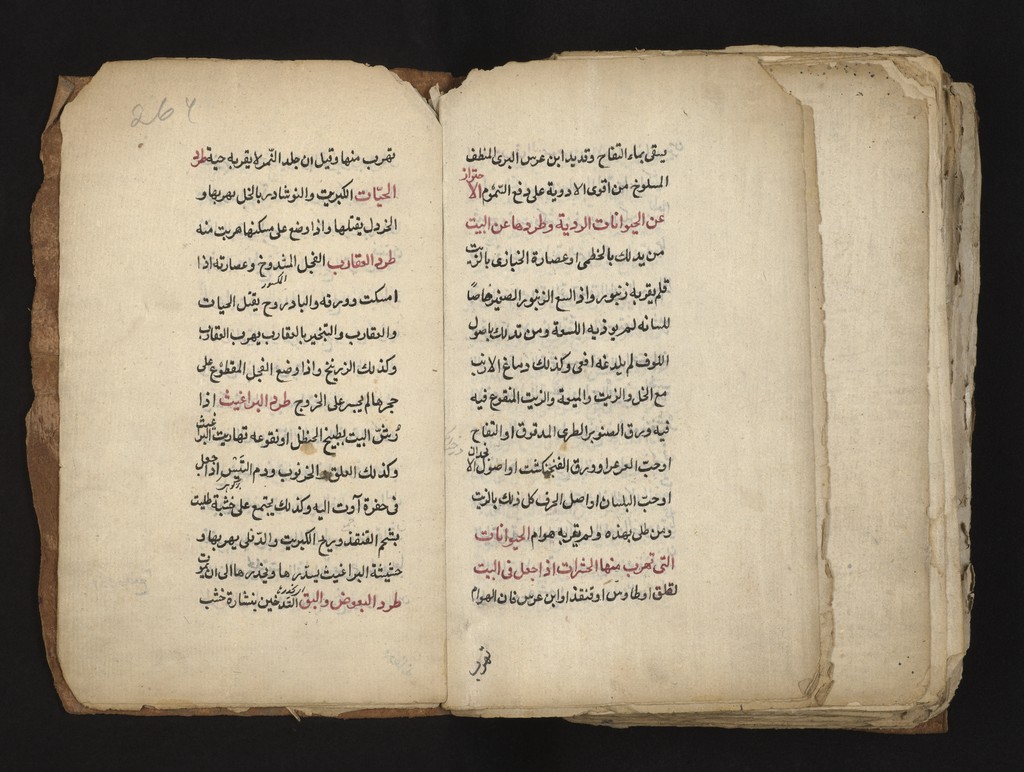 يسقى بماء التفاح وقديد ابن عرس البرى المنظف
المسلوخ من اقوى الادوية على دفع السموم الاحتراز
عن الحيوانات الردية وطردها عن البيت
من يدلك بالخطمى او عصارة الخبازى بالزيت
فلم يقربه زنبور واذا لسع الزنبور الصغير
للسانه لم يوذيه اللسعة ومن تدلك باصول
اللوف لم يلدغه افعى وكذلك دماغ الارنب
مع الخل والزيت والميعة والزيت المنقوع فيه
فيه ورق الصنوبر الطرى المدقوق او التفاح
اوحب العرعر او ورق الفنجنكشت او اصول الانجدان
اوحب البلسان او اصل الحرف كل ذلك بالزيت
ومن طلى بهذه ولم يقربه هوام الحيوانات
التى تهرب منها الحشرات اذا جعل فى البيت
لقلق او طاوس او قنفذ او ابن عرس فان الهوام
تهرب
264
تهرب منها وقيل ان جلد النمر لا يقربه حية طرد
الحيّات الكبريت والنوشادر بالخل يهربها و
الخردل يقتلها واذا وضع على مسكنها هربت منه
طرد العقارب الفجل المشدوخ وعصارته اذا
المكسور
امسكت وورقه والبادروح يقتل الحيات
والعقارب والتبخير بالعقارب يهرب العقارب
وكذلك الزرنيخ واذا وضع الفجل المقطوع على
جحرها لم يجسر على الخروج طرد البراغيث اذا
رُشّ البيت بطبيخ الحنظل او نقوعه تهاربت البراغيث
وكذلك العلق والخرنوب ودم التيس اذا جعل
فى حفرة آوت اليه وكذلك يجتمع على خشبة طليت
بشحم القنفذ وريح الكبريت والدفلى يهربها و
حشيشة البراغيث يسدرها ويخدرها الى ان تموت
طرد البعوض والبق التدخين بنشارة خشب